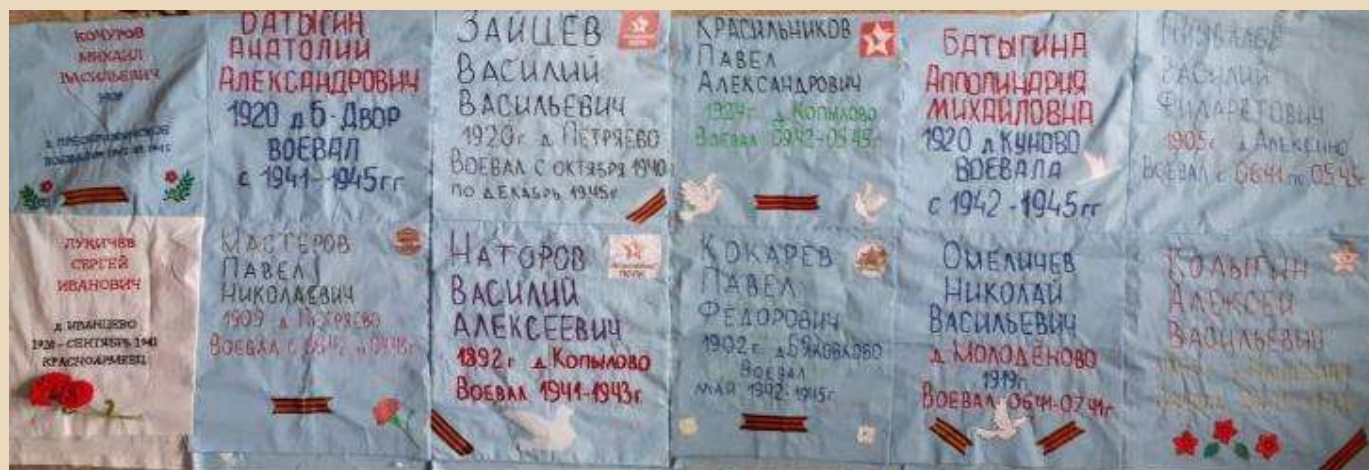 КОЧУРОВ
МИХАИЛ
ВАСИЛЬЕВИЧ
БАТЫГИН
АНАТОЛИЙ
АЛЕКСАНДРОВИЧ
1920 д Б-ДВОР
ВОЕВАЛ
с 1941-1945гг
ЗАЙЦЕВ
ВАСИЛИЙ
ВАСИЛЬЕВИЧ
1920г д ПЕТРЯЕВО
ВОЕВАЛ С ОКТЯБРЯ 1940
ПО ДЕКАБРЬ 1945г
КРАСИЛЬНИКОВ
ПАВЕЛ
АЛЕКСАНДРОВИЧ
1924г д КОПЫЛОВО
ВОЕВАЛ 0942-0545г
БАТЫГИНА
АППОЛИНАРИЯ
МИХАЙЛОВНА
1920 д КУНОВО
ВОЕВАЛА
с 1942-1945гг
ВАСИЛИЙ
ФИЛАРЕТОВИЧ
1905г д АЛЕКСИНО
ВОЕВАЛ с 0641 по 0545
ЛУКИЧЕВ
СЕРГЕЙ
ИВАНОВИЧ
д ИВАНЦЕВО
СЕНТЯБРЬ 1941
КРАСНОАРМЕЕЦ
МАСТЕРОВ
ПАВЕЛ
НИКОЛАЕВИЧ
1909 д
ВОЕВАЛ с
НАТОРОВ
ВАСИЛИЙ
АЛЕКСЕЕВИЧ
1892г д КОПЫЛОВО
ВОЕВАЛ 1941-1943г
КОКАРЕВ
ПАВЕЛ
ФЁДОРОВИЧ
1902г
ВОЕВАЛ
МАЙ 1942-1945г
ОМЕЛИЧЕВ
НИКОЛАЙ
ВАСИЛЬЕВИЧ
д МОЛОДЁНОВО
1919г
ВОЕВАЛ 0641-0741г
КОЛЫГИН
АЛЕКСЕЙ
ВАСИЛЬЕВИЧ